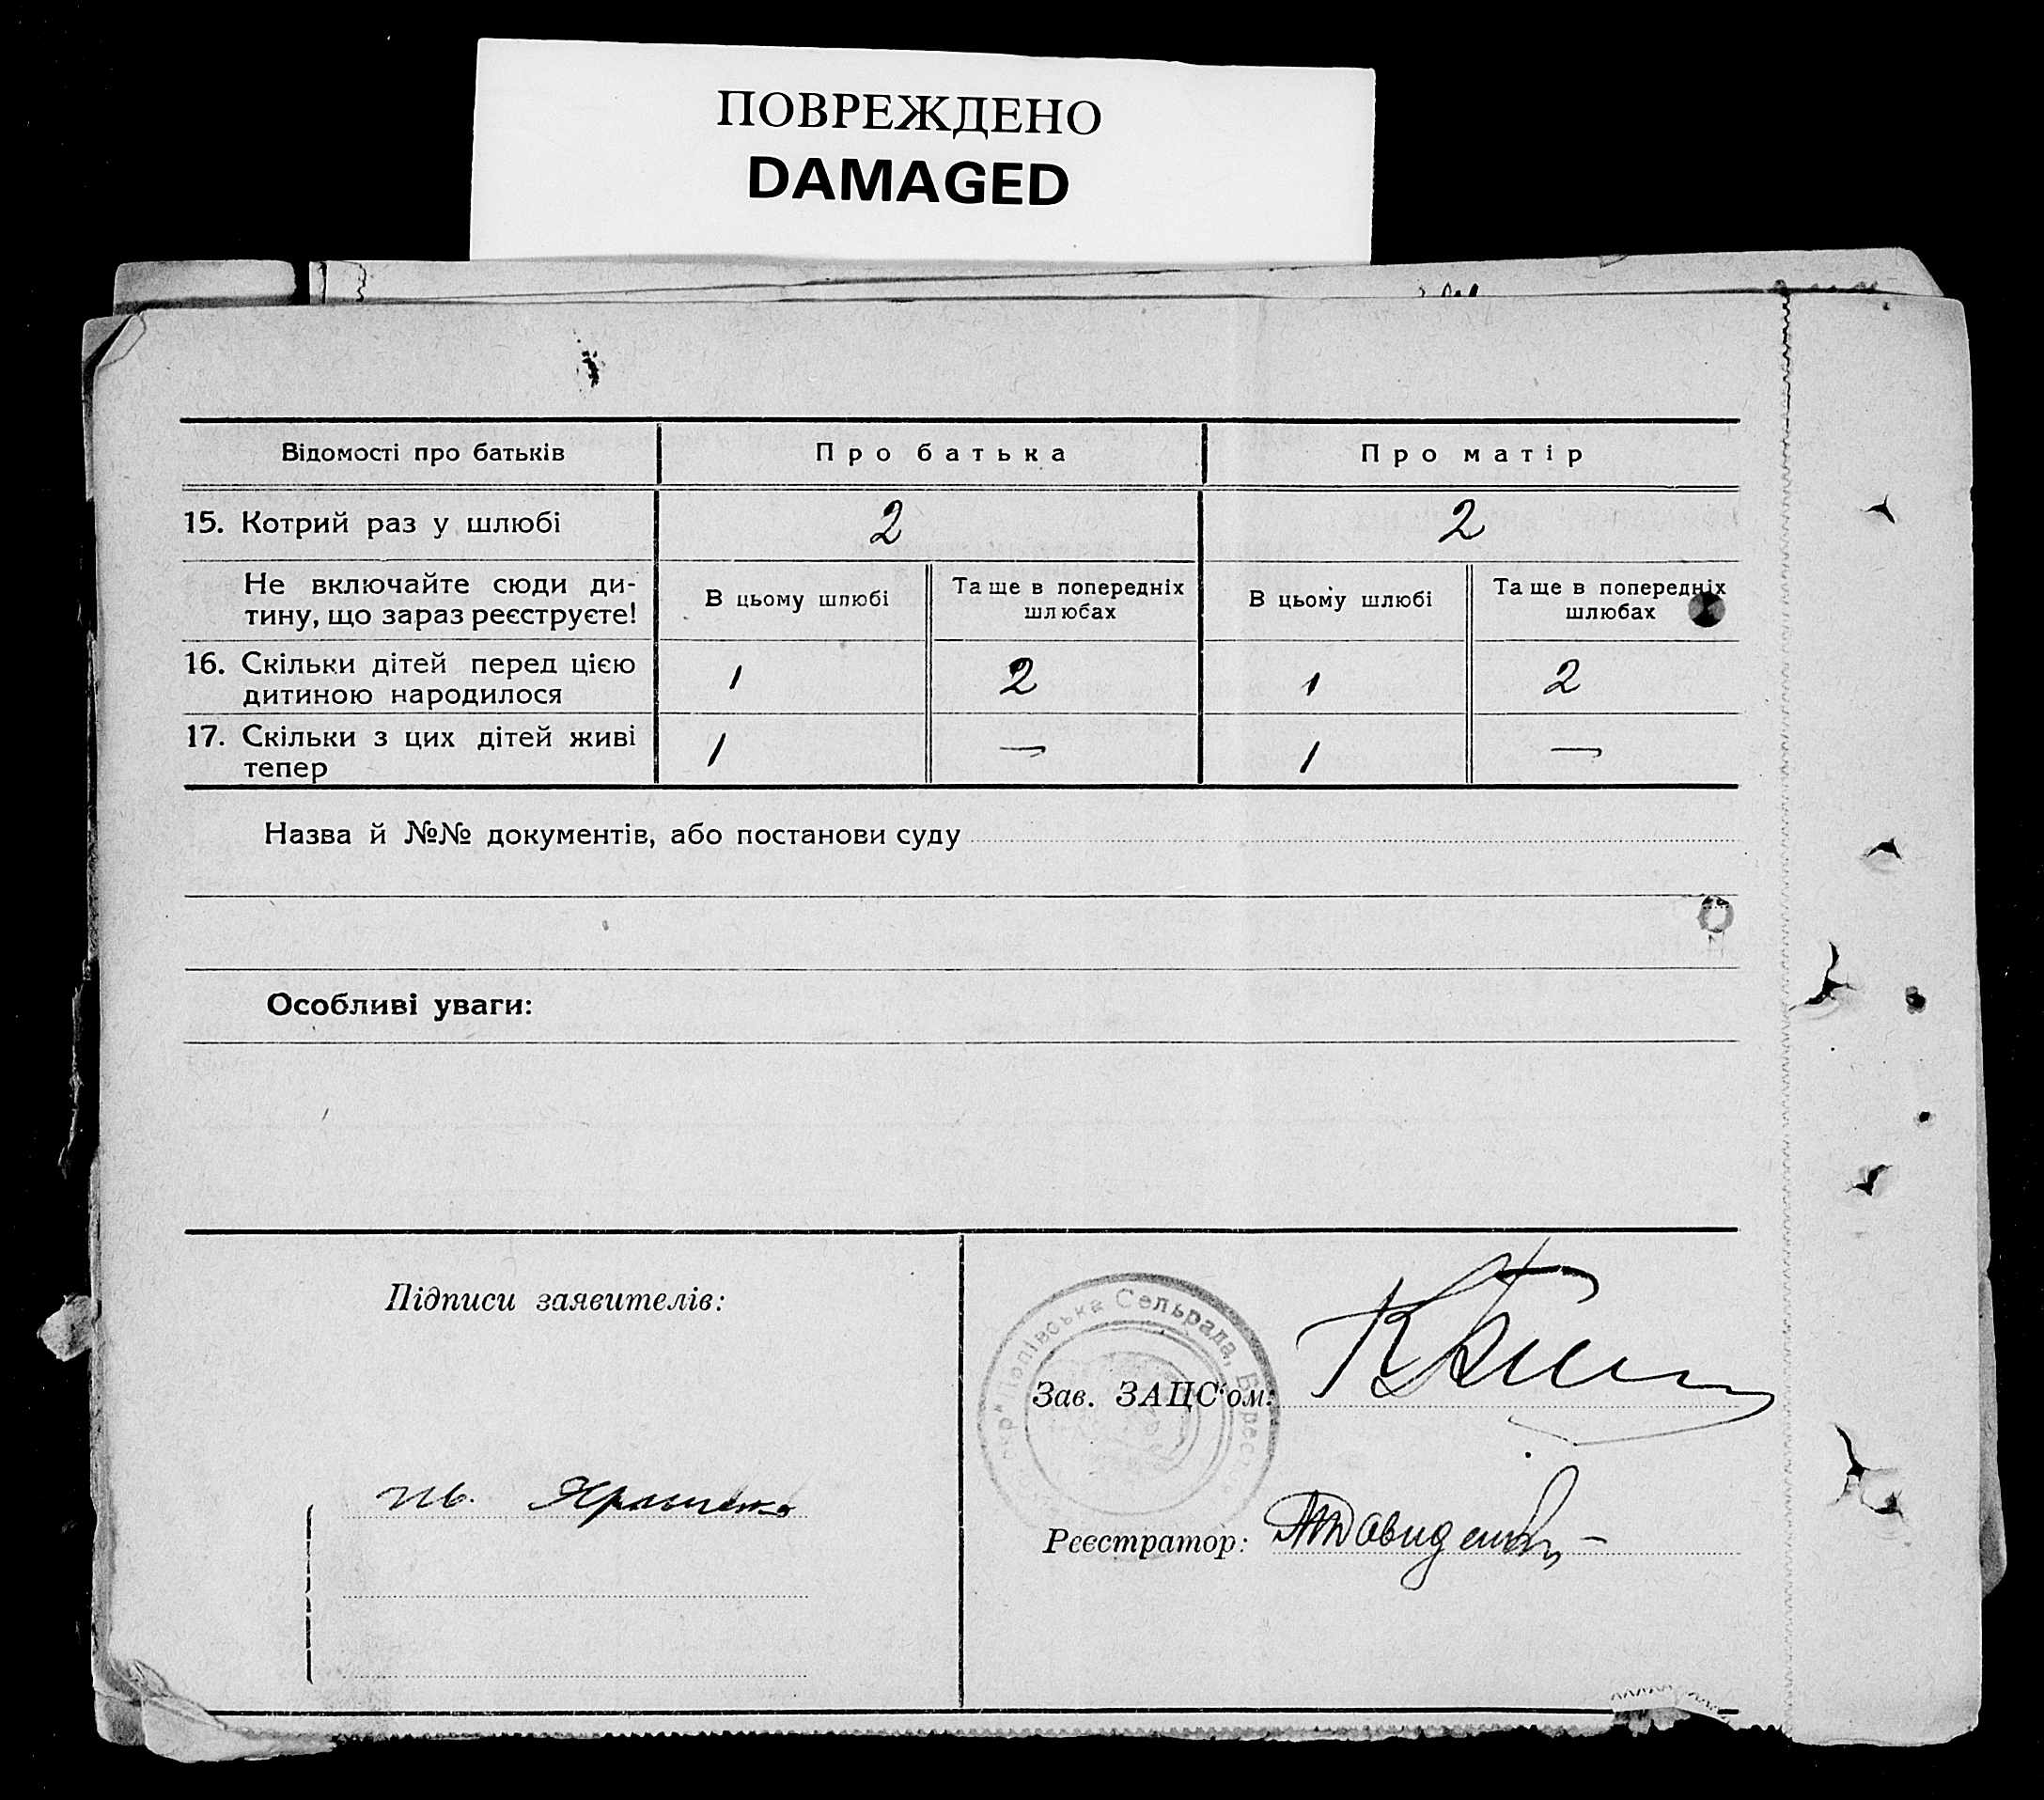 ПОВРЕЖДЕНО
DAMAGED
Відомості про батьків Про батька Про матір
15. Котрий раз у шлюбі 2 2
Не включайте сюди ди-
тину, що зараз реєструєте!
В цьому шлюбі
Та ще в попередніх
шлюбах
В цьому шлюбі
Та ще в попередніх
шлюбах
16. Скільки дітей перед цією
дитиною народилося 1 2 1 2
17. Скільки з цих дітей живі
тепер 1 — 1 —
Назва й №№ документів, або постанови суду
Особливі уваги:
Підписи заявителів:
Попівська Сельрада,
Зав. ЗАЦС'ом:
Реєстратор: